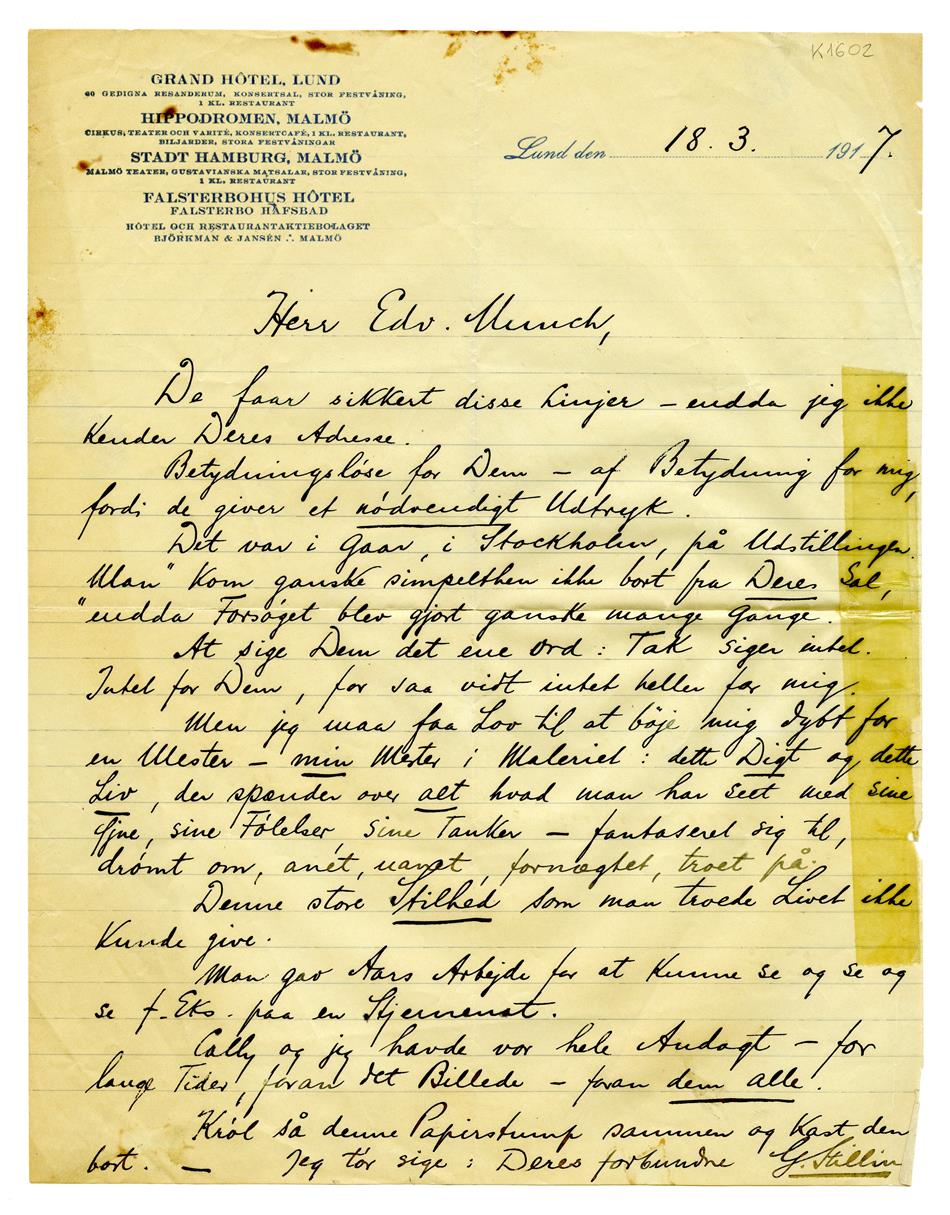 K1602
GRAND HÔTEL, LUND
60 GEDIGNA RESANDERUM, KONSERTSAL, STOR FESTVÅNING,
1 KL. RESTAURANT
HIPPODROMEN, MALMÖ
CIRKUS, TEATER OCH VARITÉ, KONSERTCAFÉ, 1 KL. RESTAURANT,
BILJARDER, STORA FESTVÅNINGAR
STADT HAMBURG, MALMÖ
MALMÖ TEATER, GUSTAVIANSKA MATSALAR, STOR FESTVÅNING,
1 KL. RESTAURANT
FALSTERBOHUS HÔTEL
FALSTERBO HAFSBAD
HÔTEL OCH RESTAURANTAKTIEBOLAGET
BJÖRKMAN & JANSÉN ∴ MALMÖ
Lund den 18. 3. 1917.
Herr Edv. Munch,
De faar sikkert disse Linjer – endda jeg ikke
kender Deres Adresse.
Betydningsløse for Dem – af Betydning for mig,
fordi de giver et nødvendigt Udtryk.
Det var i Gaar, i Stockholm, på Udstillingen.
"Man" kom ganske simpelthen ikke bort fra Deres Sal,
endda Forsøget blev gjort ganske mange Gange.
At sige Dem det ene Ord: Tak siger intet.
Intet for Dem, for saa vidt intet heller for mig.
Men jeg maa faa Lov til at bøje mig dybt for
en Mester – min Mester i Maleriet: dette Digt og dette
Liv, der spænder over alt hvad man har seet med sine
Øjne, sine Følelser, sine Tanker – fantaseret sig til,
drømt om, anet, uanet, fornægtet, troet på.
Denne store Stilhed som man troede Livet ikke
kunde give.
Man gav Aars Arbejde for at kunne se og se og
se f. Eks. paa en Stjernenat.
Cally og jeg havde vor hele Andagt – for
lange Tider, foran det Billede – foran dem alle.
Krøl så denne Papirstump sammen og kast den
bort. – Jeg tør sige: Deres forbundne G. Stillin